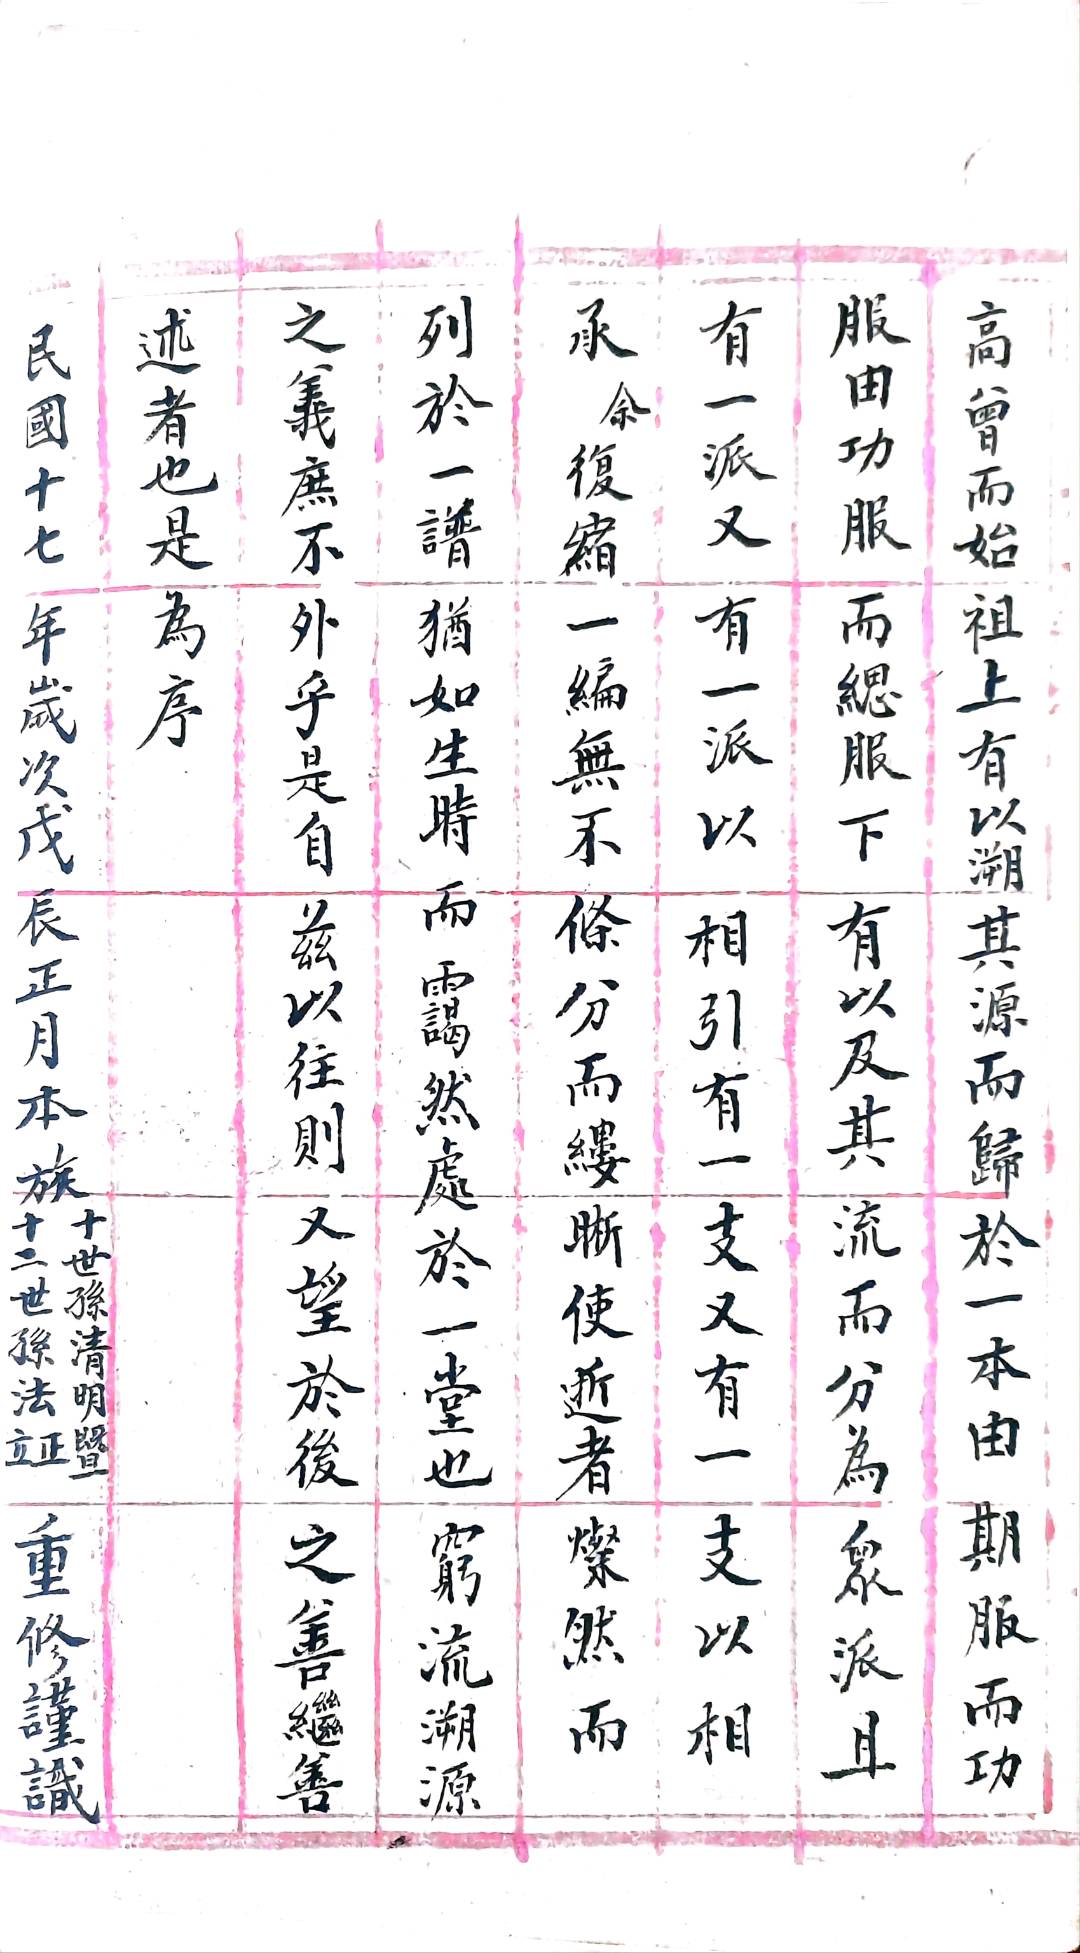 高曾而始祖上有以溯其源而歸於一本由期服而功
服由功服而緦服下有以及其流而分為眾派且
有一派又有一派以相引有一支又有一支以相
承余復縮一編無不條分而縷晰使逝者燦然而
列於一譜猶如生時而靄然處於一堂也窮流溯源
之義庶不外乎是自茲以往則又望於後之善繼善
述者也是為序
民國十七年歲次戊辰正月本族
十世孫清明暨
十二世孫法正立
重修謹識